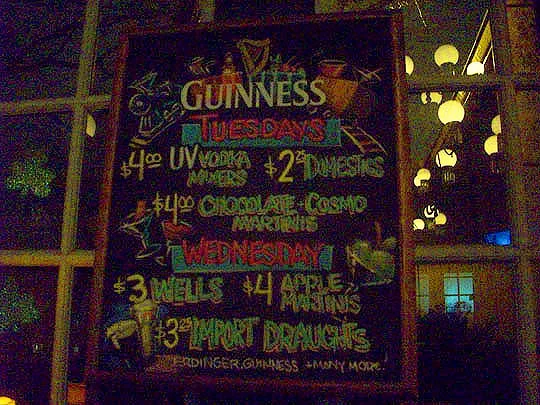 GUINNESS
TUESDAYS
$4.00 UV VODKA MIXERS $2.25 DOMESTICS
$4.00 CHOCOLATE + COSMO MARTINIS
WEDNESDAY
$3 WELLS $4 APPLE MARTINIS
$3.25 IMPORT DRAUGHTS
ERDINGER, GUINNESS + MANY MORE!